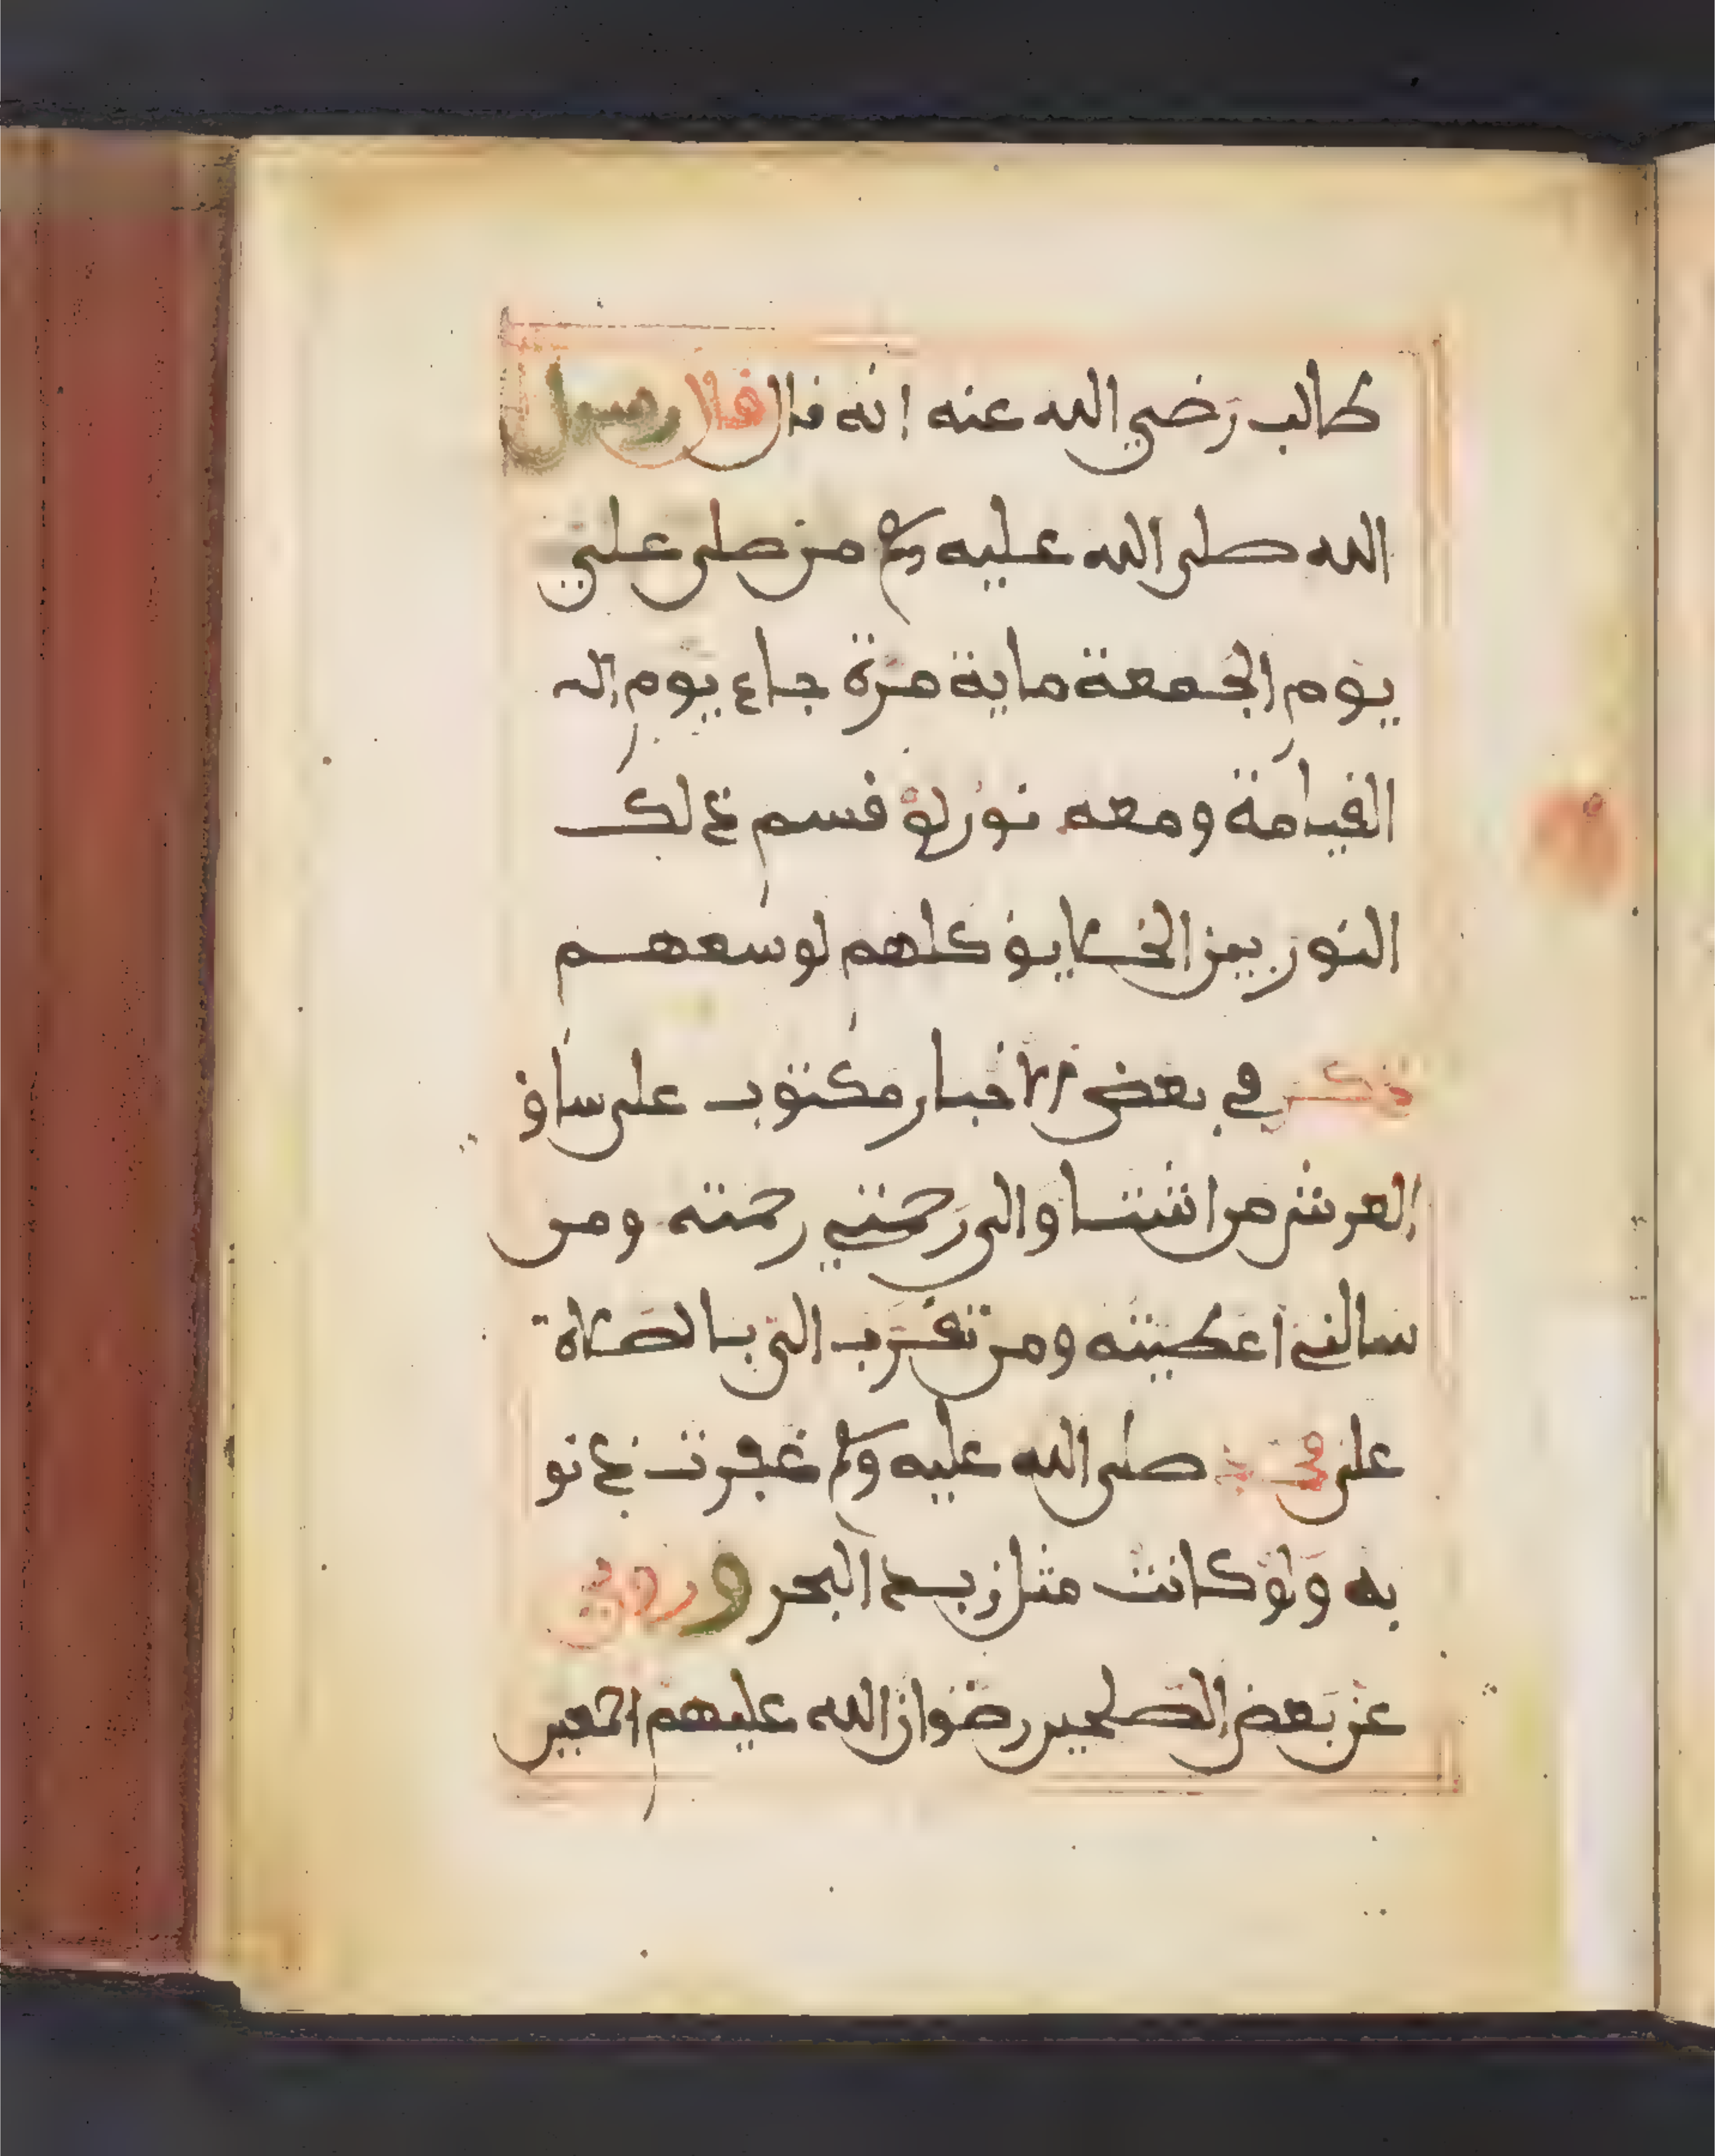 طالب رَضي الله عنه انه قال قال رسول
الله صلى الله عليه وسلم من صلى علي
يوم الجمعة ماية مرة جاء يوم
القيامة ومعه نور لو قسم ذلك
النور بين الخلايق كلهم لوسعهم
ذكر في بعض الاخبار مكتوب على ساق
العرش من اشتاو الى رَحمتي رحمته ومن
سالني اعطيته ومن تقرَّب الي بالصلاة
على محمد صلى الله عليه وسلم غفرت ذنو
به ولو كانت مثل زبد البحر وروي
عن بعض الصلحين رضوان الله عليهم اجمعين